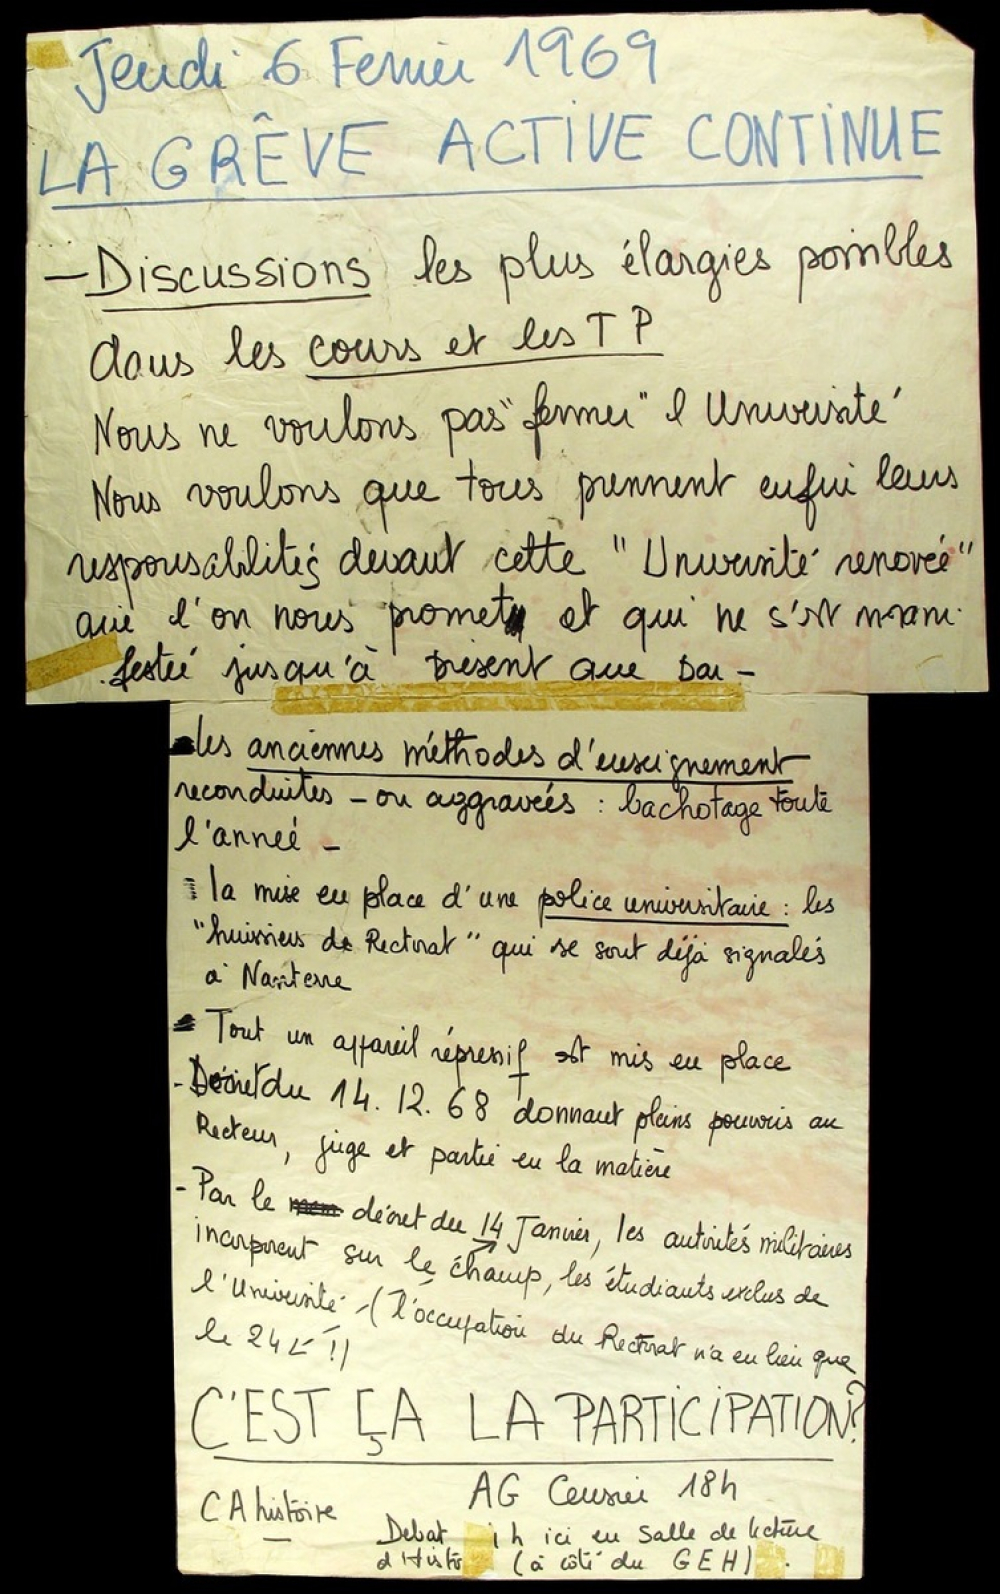 Jeudi 6 Fevrier 1969
LA GRÊVE ACTIVE CONTINUE
– Discussions les plus élargies possibles
dans les cours et les T P
Nous ne voulons pas "fermer" l'Université
Nous voulons que tous prennent enfin leurs
responsabilités devant cette "Université renovée"
que l'on nous promet et qui ne s'est mani-
festée jusqu'à présent que par –
les anciennes méthodes d'enseignement
reconduites – ou aggravées : bachotage toute
l'année –
la mise en place d'une police universitaire : les
"huissiers de Rectorat" qui se sont déjà signalés
à Nanterre
Tout un appareil répressif est mis en place
- Décret du 14. 12. 68 donnant pleins pouvoirs au
Recteur, juge et partie en la matière
- Par le décret du 14 Janvier, les autorités militaires
incorporent sur le champ, les étudiants exclus de
l'Université - (l'occupation du Rectorat n'a eu lieu que
le 24 !)
C'EST ÇA LA PARTICIPATION?
AG Censier 18h
CA histoire
Debat h ici en Salle de lecture
d'Histo (à côté du GEH) .